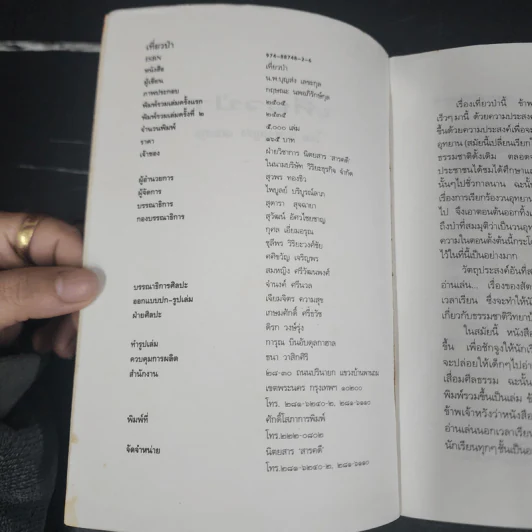 เที่ยวป่า
ISBN 974-88748-3-6
หนังสือ เที่ยวป่า
ผู้เขียน น.พ.บุญส่ง เลขะกุล
ภาพประกอบ
พิมพ์รวมเล่มครั้งแรก ๒๕๐๕
พิมพ์รวมเล่มครั้งที่ ๒ ๒๕๓๕
จำนวนพิมพ์ ๕,๐๐๐ เล่ม
ราคา ๑๖๕ บาท
เจ้าของ ฝ่ายวิชาการ นิตยสาร สารคดี
ในนามบริษัท วิริยะธุรกิจ จำกัด
ผู้อำนวยการ สุวพร ทองธิว
ผู้จัดการ ไพบูลย์
บรรณาธิการ สุดารา สุจฉายา
กองบรรณาธิการ สุวัฒน์ อัศวไชยชาญ
กุศล เอี่ยมอรุณ
ชุลีพร วิริยะวงศ์ชัย
คติขวัญ เจริญพร
สมหญิง ศรีวัฒนพงศ์
บรรณาธิการศิลปะ จำนงค์ ศรีนวล
ออกแบบปก-รูปเล่ม เจียมจิตร ความสุข
ฝ่ายศิลปะ เกษมศักดิ์ ศรีธวัช
ดิรก วงษ์รุ่ง
ทำรูปเล่ม การุณ บินอับดุลกาฮาล
ควบคุมการผลิต ธนา วาสิกศิริ
สำนักงาน ๒๘-๓๐ ถนนปรินายก แขวงบ้านพานถม
เขตพระนคร กรุงเทพฯ ๑๐๒๐๐
โทร. ๒๘๑-๖๒๔๐-๒, ๒๘๑-๖๑๑๐
พิมพ์ที่ ศักดิ์โสภาการพิมพ์
โทร.๒๒๒-๐๘๐๒
จัดจำหน่าย นิตยสาร 'สารคดี'
โทร.๒๘๑-๖๒๔๐-๒, ๒๘๑-๖๑๑๐
เรื่องเที่ยวป่านี้ ข้าพ
เร็วๆ มานี้ ด้วยความประสงค์
ขึ้นด้วยความประสงค์เพื่อจะ
อุทยาน (สมัยนี้เปลี่ยนเรียกใ
ธรรมชาติดั้งเดิม ตลอดจ
ประชาชนได้ชมได้ศึกษาและ
นั้นๆ ไปชั่วกาลนาน ฉะนั้
เรื่องการเรียกร้องวนอุทยาน
ไป จึงเอาตอนต้นออกทิ้ง
ถึงป่าที่สมมุติว่าเป็นวนอุท
ความในตอนตั้งต้นนี้กระโ
ไว้ในที่นี้เป็นอย่างมาก
วัตถุประสงค์อันที่ส
อ่านเล่น... เรื่องของสัต
เวลาเรียน ซึ่งจะทำให้นั
เกี่ยวกับธรรมชาติวิทยาป่
ในสมัยนี้ หนังสือ
ขึ้น เพื่อชักจูงให้นักเรี
จะปล่อยให้เด็กๆ ไปอ่า
เสื่อมศีลธรรม ฉะนั้น
พิมพ์รวมขึ้นเป็นเล่ม ข้
ข้าพเจ้าหวังว่าหนังสือ
อ่านเล่นนอกเวลาเรียน
นักเรียนทุกๆ ชั้นเป็นอ